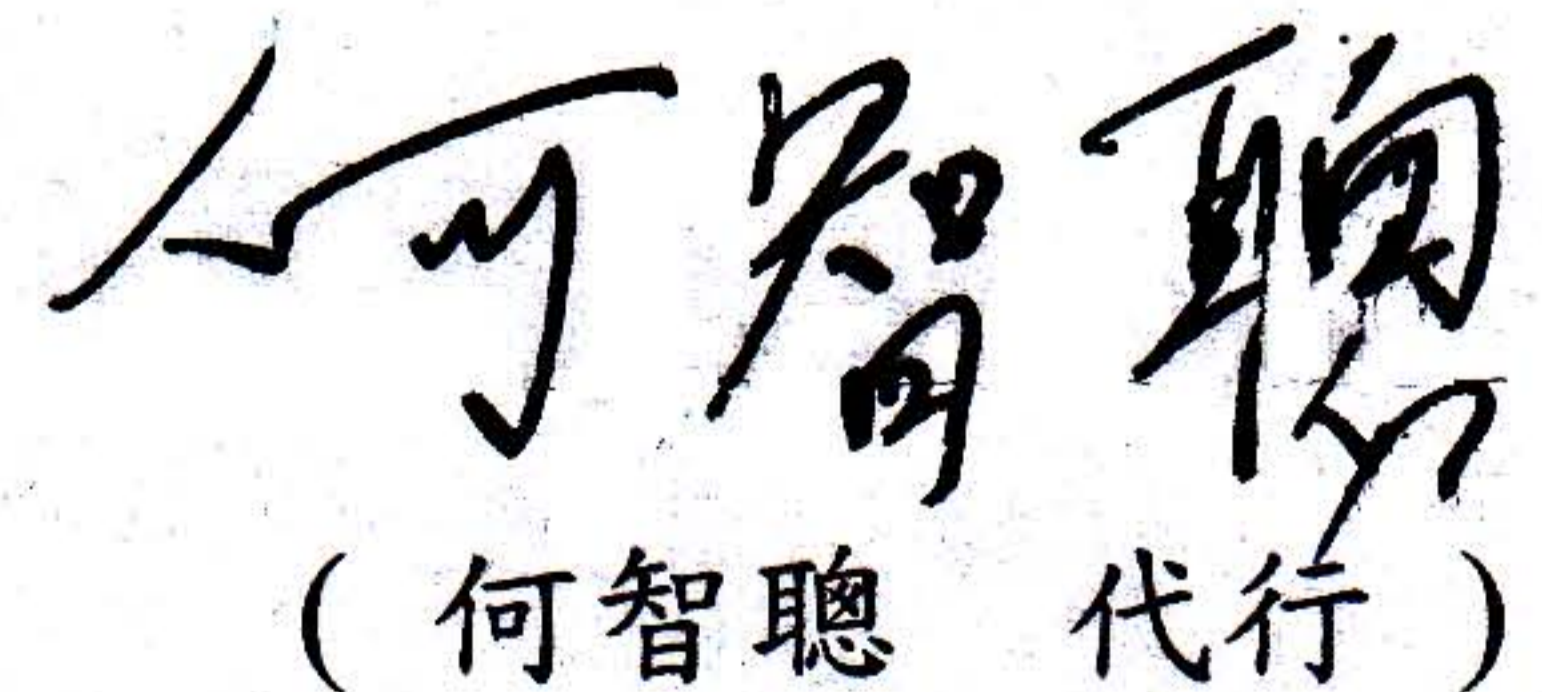 何智聰
(何智聰 代行)